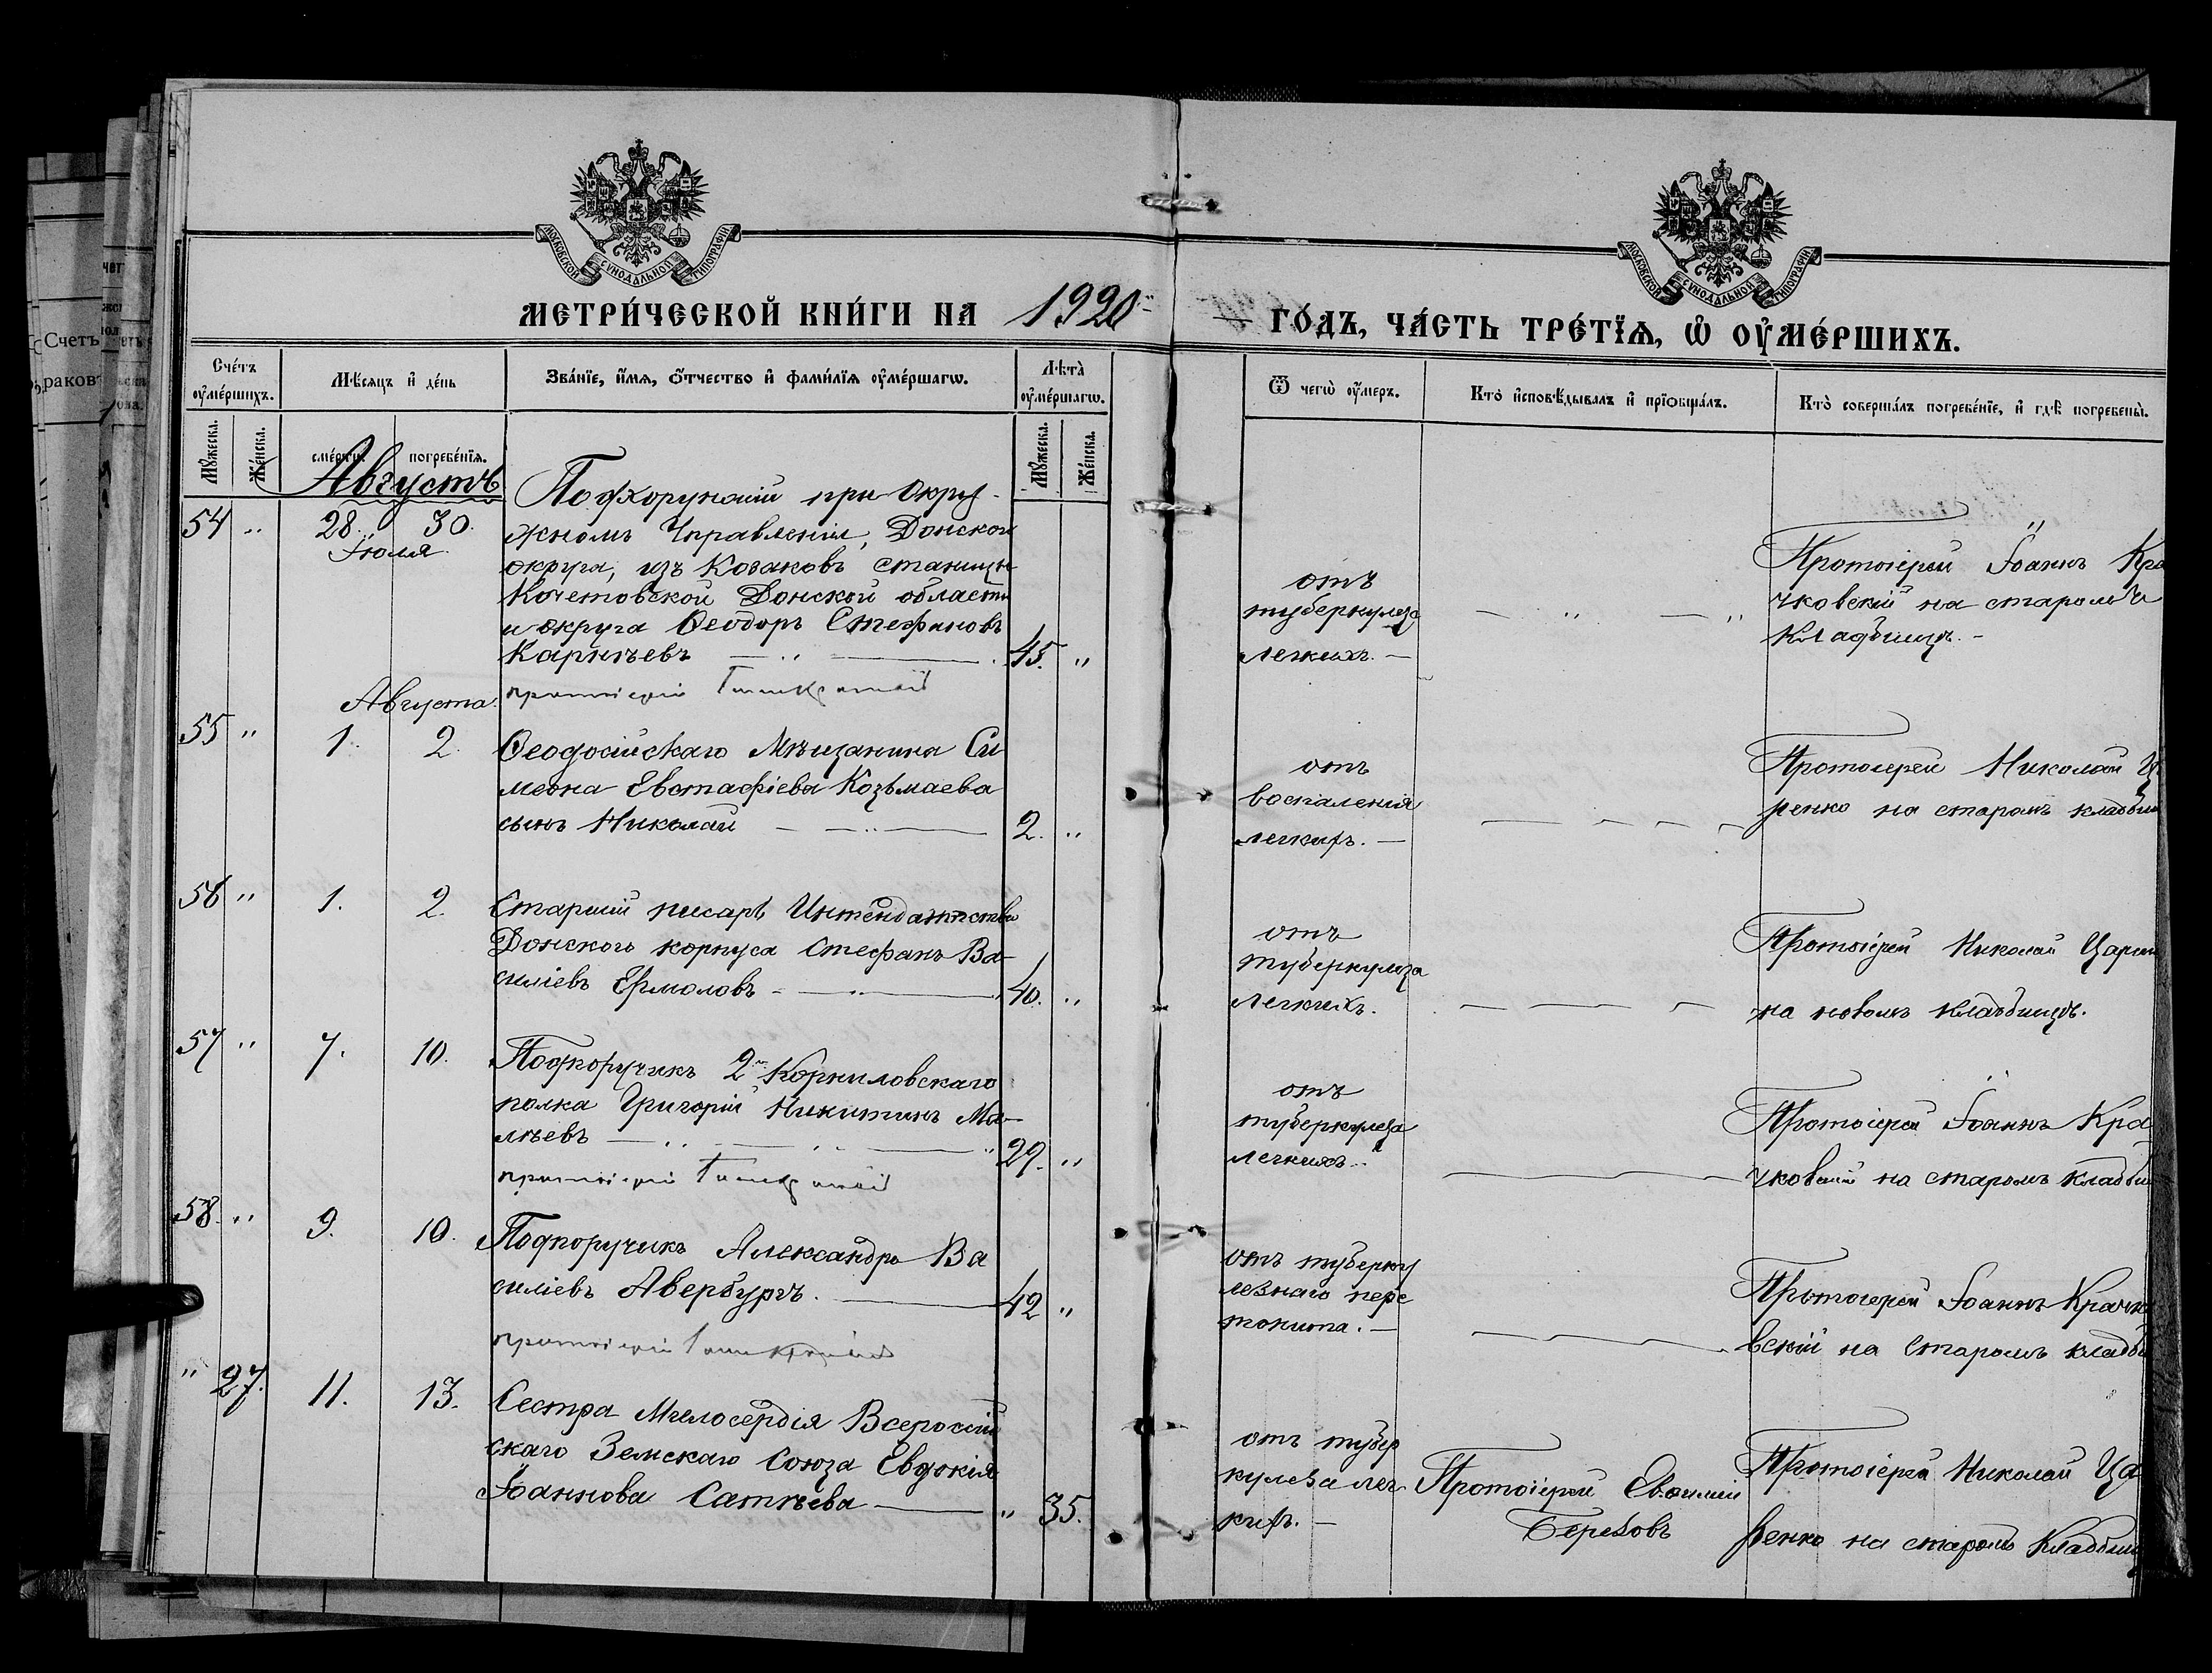 МОСКОВСКОЙ СУНОДАЛЬНОЙ ТИПОГРАФІИ
МОСКОВСКОЙ СУНОДАЛЬНОЙ ТИПОГРАФІИ
МЕТРИ́ЧЕСКОЙ КНИ́ГИ НА 1920
ГО́ДЪ, ЧА́СТЬ ТРЕ́ТІѦ, Ѡ ОУМЕ́РШИХЪ.
Сче́тъ оуме́ршихъ.
Мѣсяцъ и де́нь
Зва́нїе, и҆мя, о҆тчество и҆ фами́лїя оуме́ршагѡ.
Лѣта̀ оуме́ршагѡ.
Ѿ чегѡ̀ оу́меръ.
Кто̀ и҆сповѣдывалъ и҆ прїѡбща́лъ.
Кто̀ соверша́лъ погребе́нїе, и҆ гдѣ̀ погребены̀.
Мꙋжеска.
Же́нска.
сме́рти.
погребе́нїя.
Мꙋжеска.
Же́нска.
Счетъ
Августъ
54 " 28. 30.
Іюля
Подхорунжій при Окру-
жномъ Управленіи, Донской
округа, изъ Козаковъ станицы
Кочетовской Донской области
и округа Ѳеодоръ Стефановъ
Карнѣевъ 45. "
протоіерей
отъ
туберкулеза
легкихъ. —
Протоіерей Іоаннъ Кра
чковскій на старомъ
кладбищѣ. -
Августа.
55 " 1. 2.
Ѳеодосійскаго Мѣщанина Си
меона Евстафіева Козьмаева
сынъ Николай 2. "
отъ
воспаленія
легкихъ. —
Протоіерей Николай Ца
ренко на старомъ кладби
56 " 1. 2.
Старшій писарь Интендантства
Донского корпуса Стефанъ Ва-
силіевъ Ермоловъ 40. "
отъ
туберкулеза
легкихъ.
Протоіерей Николай Царен
на новомъ кладбищѣ.
57 " 7. 10.
Подпоручикъ 2го Корниловскаго
полка Григорій Никитинъ Ма-
лѣевъ 29. "
протоіерей
отъ
туберкулеза
легкихъ.
Протоіерей Іоаннъ Кра
чковскій на старомъ кладби
58. " 9. 10.
Подпоручикъ Александръ Ва
силіевъ Авербургъ. 42 "
протоіерей
отъ туберку
лезнаго пери
тонита. —
Протоіерей Іоаннъ Крачко
вскій на старомъ кладби
" 27. 11. 13.
Сестра Милосердія Всероссій
скаго Земскаго Союза Евдокія
Іоаннова Сатѣева " 35.
отъ тубер
кулеза лег
кихъ. —
Протоіерей Евѳимій
Береховъ
Протоіерей Николай Ца
ренко на старомъ кладбищ